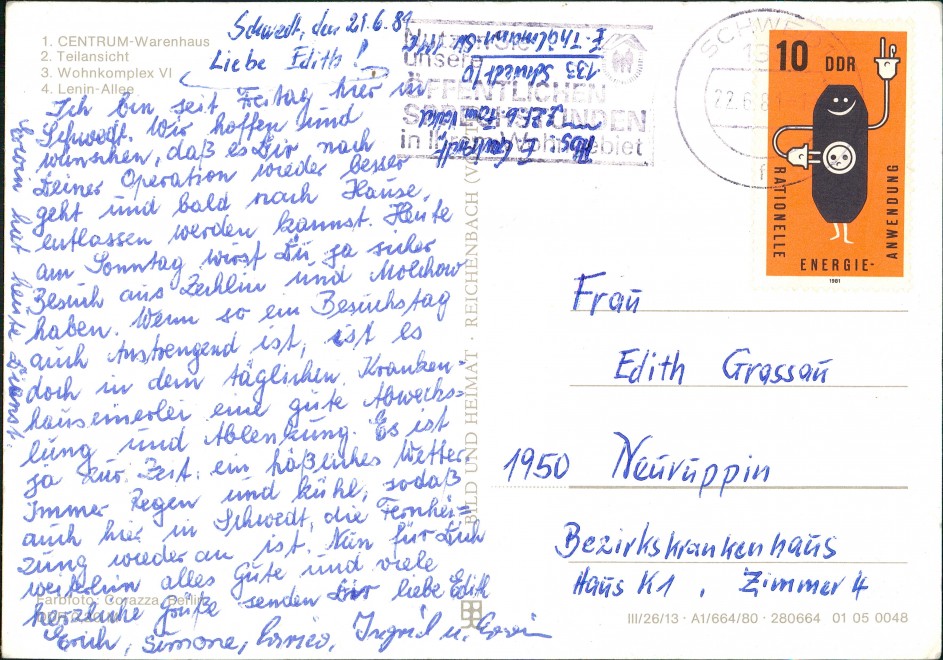 1. CENTRUM-Warenhaus
2. Teilansicht
3. Wohnkomplex VI
4. Lenin-Allee
Schwedt, den 21.6.81
Liebe Edith!
Ich bin seit Freitag hier in
Schwedt. Wir hoffen und
wünschen, daß es Dir nach
Deiner Operation wieder besser
geht und bald nach Hause
entlassen werden kannst. Heute
am Sonntag wirst Du ja sicher
Besuch aus Zechlin und Molchow
haben. Wenn so ein Besuchstag
auch Anstrengend ist, ist es
doch in dem täglichen Kranken-
hauseinerlei eine gute Abwechs-
lung und Ablenkung. Es ist
ja zur Zeit ein häßliches Wetter
Immer Regen und kühl, sodaß
auch hier in Schwedt, die Fernhei-
zung wieder an ist. Nun für Dich
weiterhin alles Gute und viele
herzliche Grüße senden Dir liebe Edith
Erich, Simone, Ingrid u. Erwin
hat heute Dienst.
Farbfoto: Corazza, Berlin
BILD UND HEIMAT · REICHENBACH
Abs.
133 Schwedt/O
E.-Thälmann-Str.
Nutzt
unsere
ÖFFENTLICHEN
in Ihrem Wohngebiet
SCHWEDT
22.6.81
10 DDR
RATIONELLE
ENERGIE-
ANWENDUNG
1981
Frau
Edith Grassau
1950 Neuruppin
Bezirkskrankenhaus
Haus K1, Zimmer 4
III/26/13 · A1/664/80 · 280664 01 05 0048